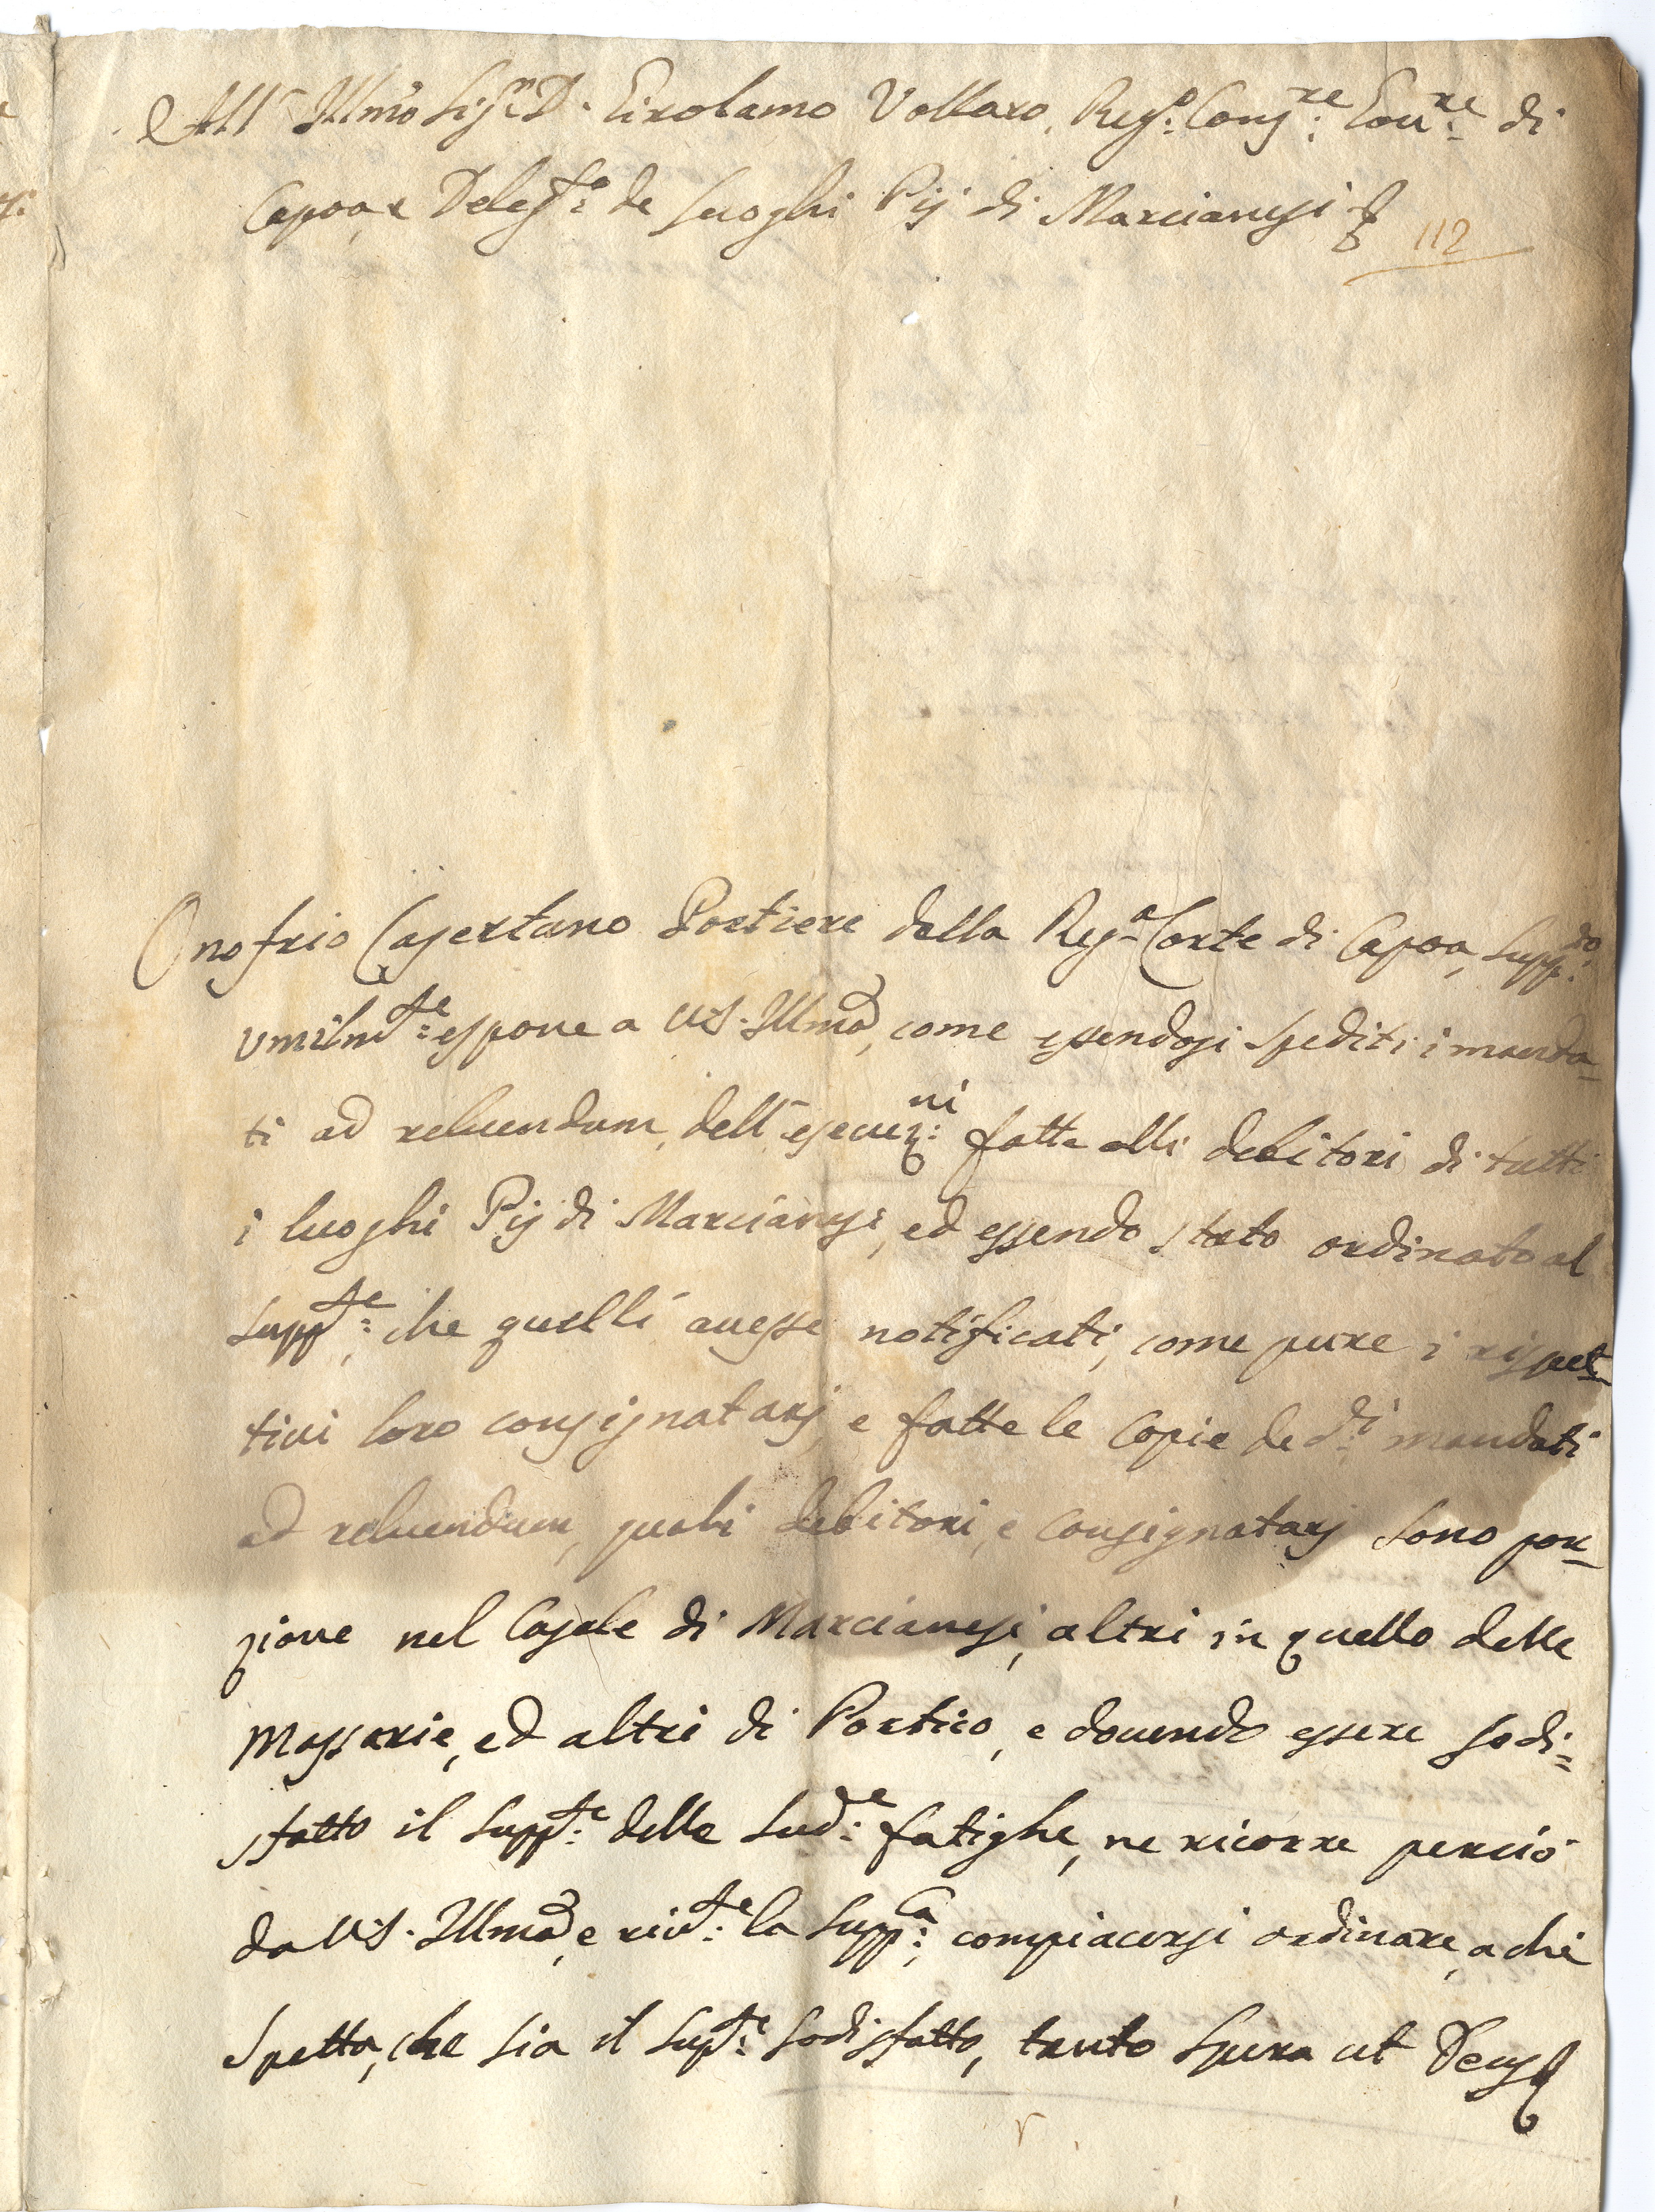 All' Ill.mo Sig.r D. Girolamo Vollaro, Reg.o Cons.re Gou.re di
Capoa, e Deleg.to de Luoghi Pij di Marcianesi
112
Onofrio Casertano Portiere della Reg.a Corte di Capoa, supp.do
umilm.te espone a VS. Ill.ma, come essendosi spediti i manda-
ti ad reluendum, dell'esecuz.ni fatte alli debitori di tutti
i luoghi Pij di Marcianesi, ed essendo stato ordinato al
supp.te, che quelli auesse notificati, come pure i rispet-
tiui loro consignatarj, e fatte le copie de d.i mandati
ad reluendum, quali debitori, e consignatarj sono por-
zione nel Casale di Marcianesi, altri in quello delle
Massarie, ed altri di Portico, e douendo essere sodi=
sfatto il supp.te delle sud.e fatighe, ne ricorre perciò
da VS. Ill.ma, e riu.te la supp.ca, compiacersi ordinare, a chi
spetta, che sia il sup.te sodisfatto, tanto spera ut Deus